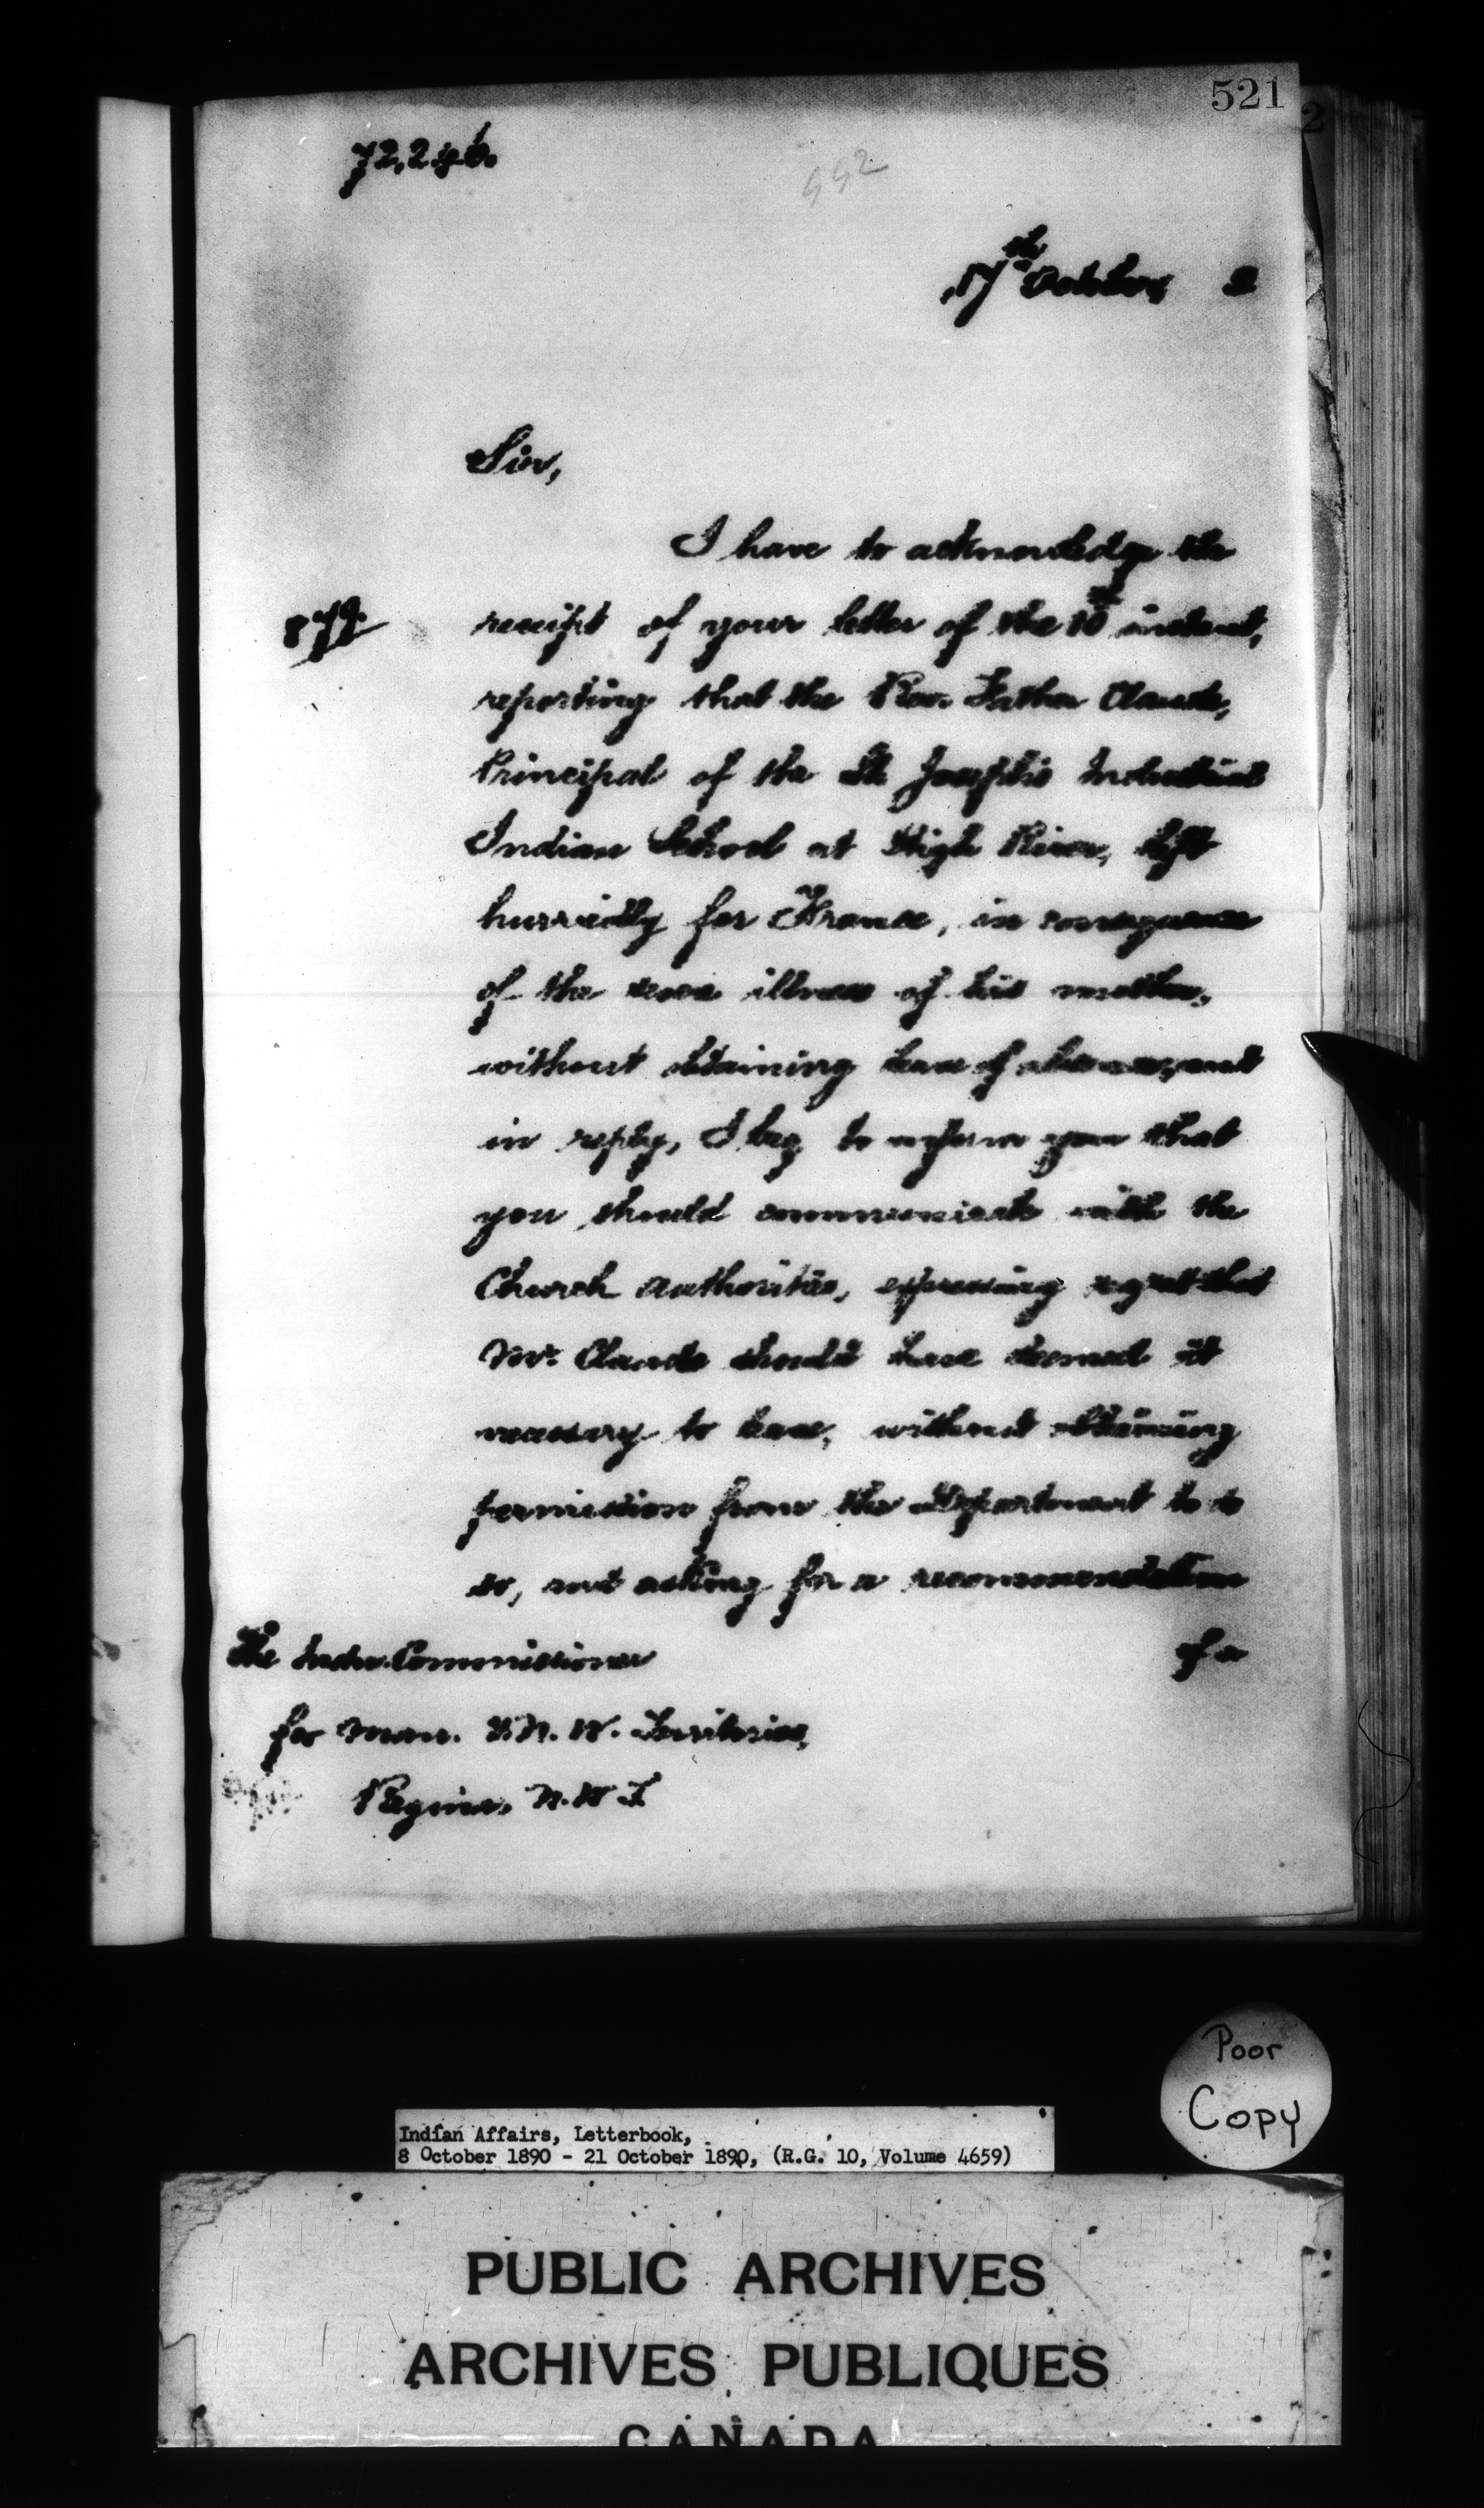 521
2
552
17th October
Sir,
I have to acknowledge the
879
receipt of your letter of the 10th instant,
reporting that the Rev. Father Claude,
Principal of the St Joseph's Industrial
Indian School at High River, left
hurriedly for France, in consequence
of the illness of his mother,
without obtaining leave of absence, and
in reply, I beg to inform you that
you should communicate with the
Church authorities, expressing regret that
Mr. Claude should have deemed it
necessary to leave, without obtaining
permission from the Department to do
so, and asking for a recommendation
of a
The Indn. Commissioner
for Man. & N. W. Territories,
Regina, N.W.T
Poor
Copy
Indian Affairs, Letterbook,
8 October 1890 - 21 October 1890, (R.G. 10, Volume 4659)
PUBLIC ARCHIVES
ARCHIVES PUBLIQUES
CANADA